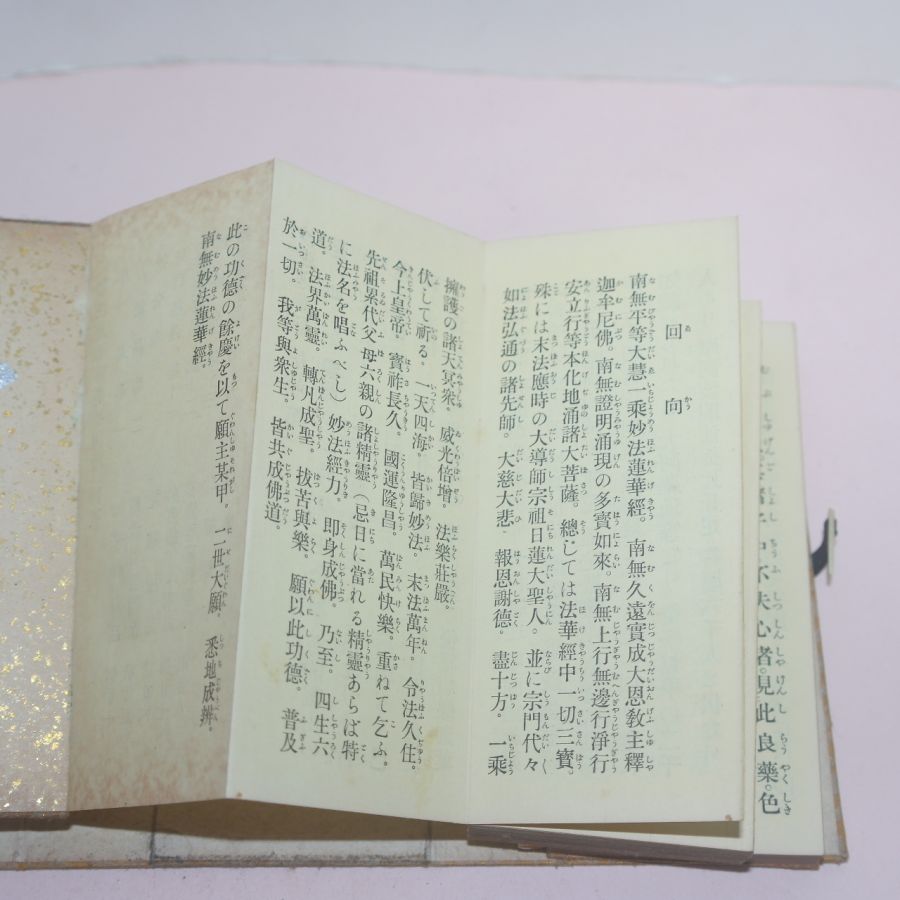 不失心者。見此良藥。色
回向
南無平等大慧一乘妙法蓮華經。南無久遠實成大恩敎主釋
迦牟尼佛。南無證明涌現の多寶如來。南無上行無邊行淨行
安立行等本化地涌諸大菩薩。總しては法華經中一切三寶。
殊には末法應時の大導師宗祖日蓮大聖人。並に宗門代々
如法弘通の諸先師。大慈大悲 報恩謝德。盡十方。一乘
擁護の諸天冥衆。威光倍增。法樂莊嚴。
伏して祈る。一天四海。皆歸妙法。末法萬年。令法久住。
今上皇帝。寳祚長久。國運隆昌。萬民快樂。重ねて乞ふ。
先祖累代父母六親の諸精靈(忌日に當れる精靈あらば特
に法名を唱ふべし)妙法經力。即身成佛。乃至。四生六
道。法界萬靈。轉凡成聖。拔苦與樂。願以此功德。普及
於一切。我等與衆生。皆共成佛道。
此の功德の餘慶を以て願主某甲。二世大願。悉地成辨。
南無妙法蓮華經。